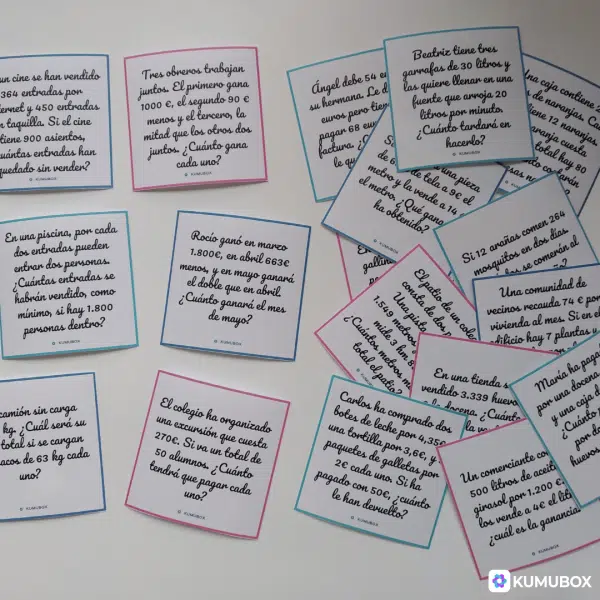 un cine se han vendido
364 entradas por
ernet y 450 entradas
taquilla. Si el cine
tiene 900 asientos,
uántas entradas han
quedado sin vender?
KUMUBOX
Tres obreros trabajan
juntos. El primero gana
1000 €, el segundo 90 €
menos y el tercero, la
mitad que los otros dos
juntos. ¿Cuánto gana
cada uno?
KUMUBOX
Ángel debe 54 e
su hermana. Le d
euros pero tien
pagar 68 eu
factura. ¿
le qu
Beatriz tiene tres
garrafas de 30 litros y
las quiere llenar en una
fuente que arroja 20
litros por minuto.
¿Cuánto tardará en
hacerlo?
KUMUBOX
na caja contiene 2
de naranjas. Ca
iene 12 naranjas.
aranja cuesta
total hay 80
S
una pieza
de 6 de tela a 9€ el
metro y la vende a 14
el metro. ¿Qué gana
ha obtenido?
KUMUBOX
En una piscina, por cada
dos entradas pueden
entrar dos personas.
¿Cuántas entradas se
habrán vendido, como
mínimo, si hay 1.800
personas dentro?
KUMUBOX
Rocío ganó en marzo
1.800€, en abril 663€
menos, y en mayo ganará
el doble que en abril.
¿Cuánto ganará el mes
de mayo?
KUMUBOX
gallin
Si 12 arañas comen 264
mosquitos en dos días,
se comerán al
El patio de un cole
consta de dos
Una pista
1.549 metros
mide 3 hm 8
¿Cuántos metros m
total el patio?
Una comunidad de
vecinos recauda 74 € por
vivienda al mes. Si en el
edificio hay 7 plantas y
camión sin carga
kg. ¿Cuál será su
total si se cargan
acos de 63 kg cada
uno?
KUMUBOX
El colegio ha organizado
una excursión que cuesta
270€. Si va un total de
50 alumnos. ¿Cuánto
tendrá que pagar cada
uno?
KUMUBOX
Carlos ha comprado dos
botes de leche por 4,35€
una tortilla por 3,6€, y
paquetes de galletas por
2€ cada uno. Si ha
pagado con 50€, ¿cuánto
le han devuelto?
KUMUBOX
En una tienda s
vendido 3.339 huevo
la docena. ¿Cuánt
María ha paga
por una docena
y una caja d
¿Cuánto
por do
huevos
Un comerciante co
500 litros de aceite
girasol por 1.200 €.
los vende a 4€ el lit
¿cuál es la ganancia
KUMUBOX
KUMUBOX